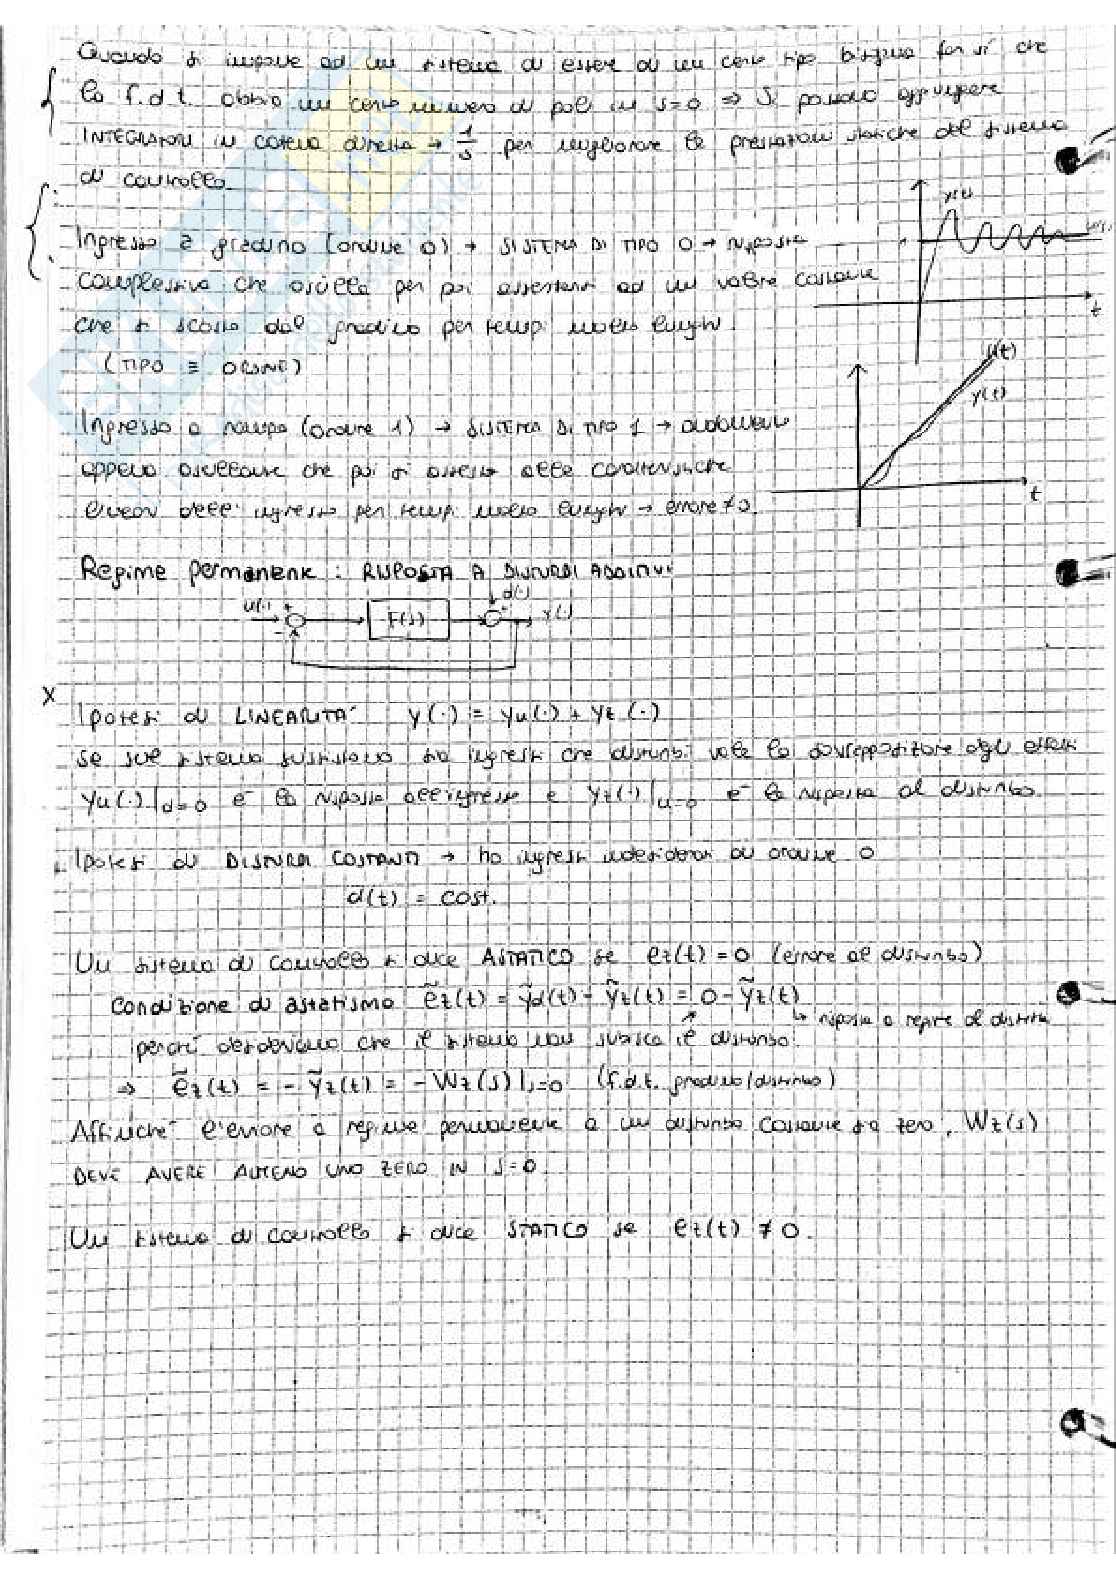 Quando si impone ad un sistema di essere di un certo tipo bisogna far sì che
la f.d.t. abbia un certo numero di poli in s=0 ⇒ Si possono aggiungere
INTEGRATORI in catena diretta → 1/s per migliorare le prestazioni statiche del sistema
di controllo.
y(t)
Ingresso a gradino (ordine 0) → SISTEMA DI TIPO 0 → risposta
complessiva che oscilla per poi assestarsi ad un valore costante
che si scosta dal gradino per tempi molto lunghi.
t
(TIPO ≡ ORDINE)
u(t)
y(t)
Ingresso a rampa (ordine 1) → SISTEMA DI TIPO 1 → andamento
appena oscillante che poi si assesta alle caratteristiche
lineari dell'ingresso per tempi molto lunghi → errore ≠ 0.
t
Regime permanente : RISPOSTA A DISTURBI ADDITIVI
d(·)
u(·) + F(s) + y(·)
-
X
Ipotesi di LINEARITÀ y(·) = yu(·) + yz(·)
se sul sistema sussistono sia ingressi che disturbi vale la sovrapposizione degli effetti
yu(·)|d=0 è la risposta all'ingresso e yz(·)|u=0 è la risposta al disturbo.
Ipotesi di DISTURBI COSTANTI → ho ingressi indesiderati di ordine 0
d(t) = cost.
Un sistema di controllo si dice ASTATICO se ez(t) = 0 (errore al disturbo)
condizione di astatismo ẽz(t) = ỹd(t) - ỹz(t) = 0 - ỹz(t)
↳ risposta a regime al disturbo
perché desideriamo che il sistema non subisca il disturbo.
⇒ ẽz(t) = - ỹz(t) = - Wz(s)|s=0 (f.d.t. gradino/disturbo)
Affinché l'errore a regime permanente a un disturbo costante sia zero, Wz(s)
DEVE AVERE ALMENO UNO ZERO IN s=0.
Un sistema di controllo si dice STATICO se ez(t) ≠ 0.